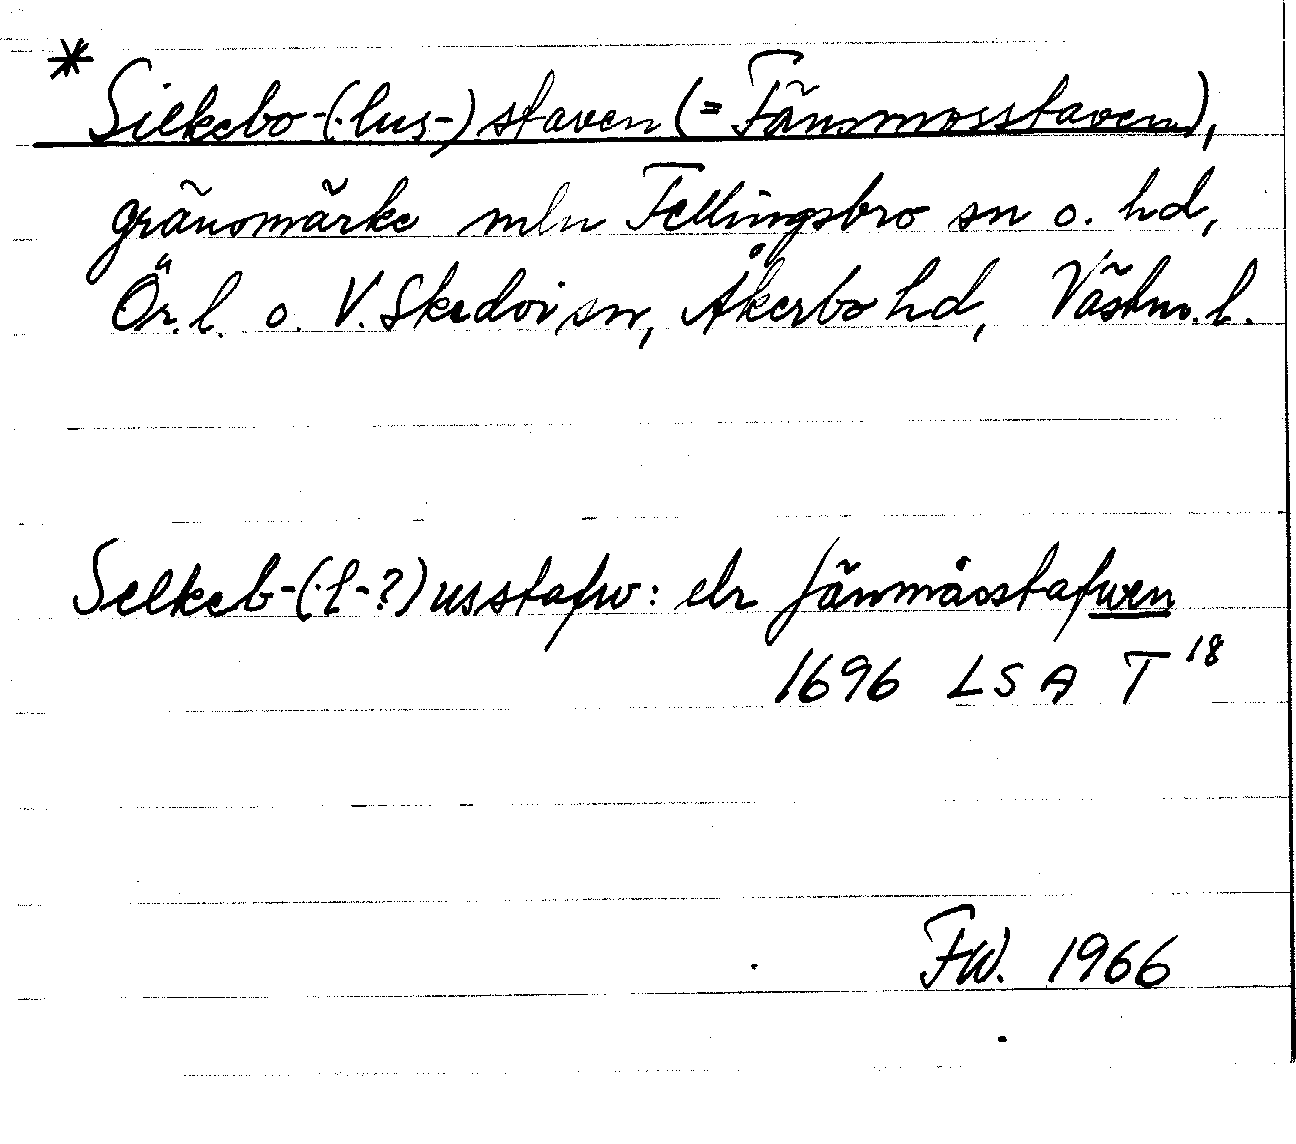 * Silkebo-(·lus-) staven (= Fänsmosstaven),
gränsmärke mln Fellingsbro sn o. hd,
Ör. l. o. V. Skedvi sn, Åkerbo hd, Västm. l.
Selkeb-(·l-?) usstafw: elr fänmåsstafwen
1696 LSA T 18
FW. 1966